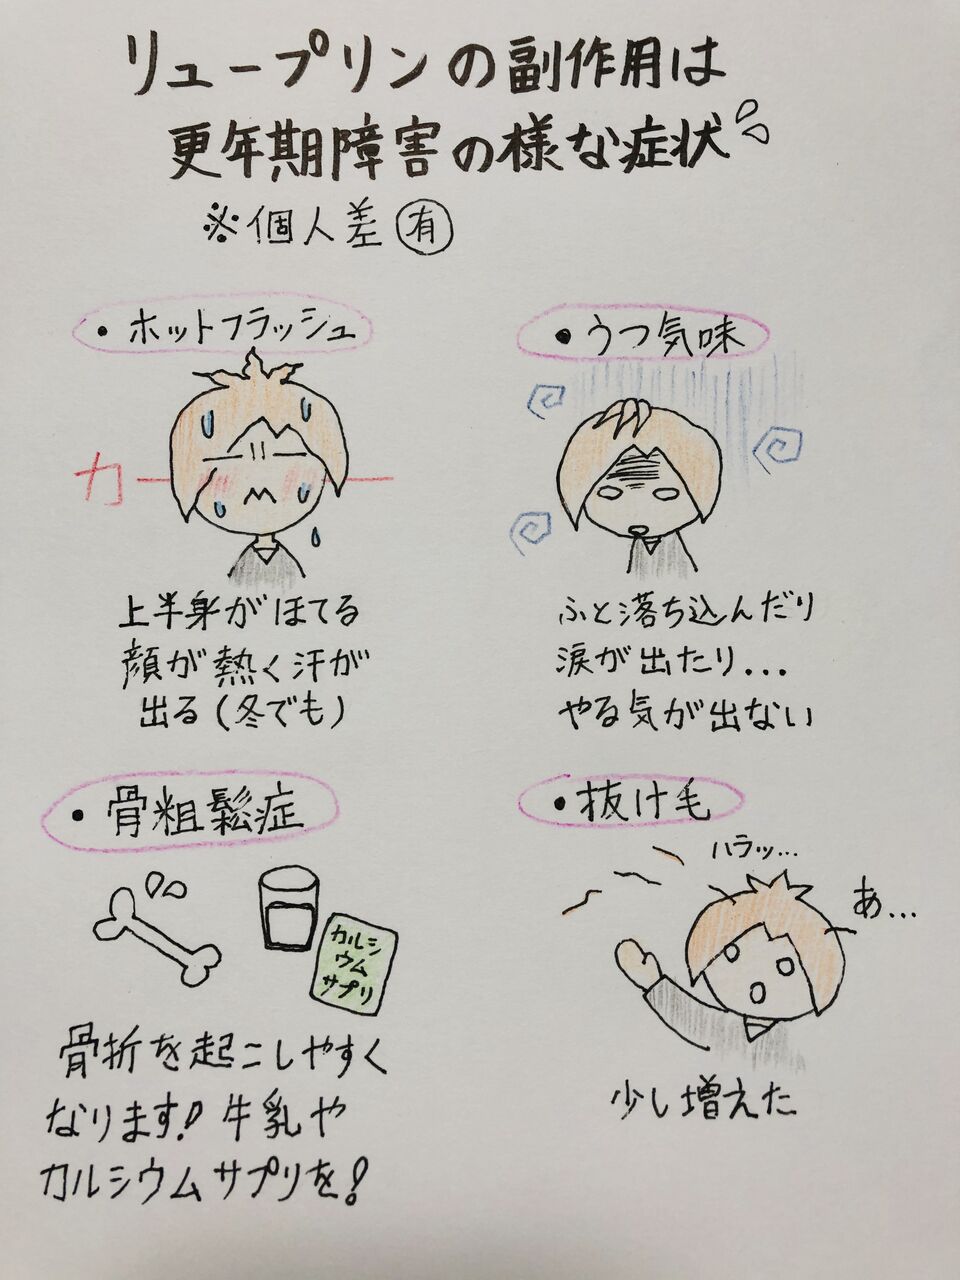 リュープリンの副作用は
更年期障害の様な症状
※個人差有
・ホットフラッシュ
カー
上半身がほてる
顔が熱く汗が
出る(冬でも)
・うつ気味
ふと落ち込んだり
涙が出たり...
やる気が出ない
・骨粗鬆症
カルシ
ウム
サプリ
骨折を起こしやすく
なります!牛乳や
カルシウムサプリを!
・抜け毛
ハラッ...
あ...
少し増えた